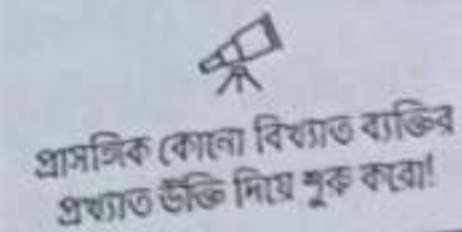 প্রাসঙ্গিক কোনো বিখ্যাত ব্যক্তির
প্রখ্যাত উক্তি দিয়ে শুরু করো!